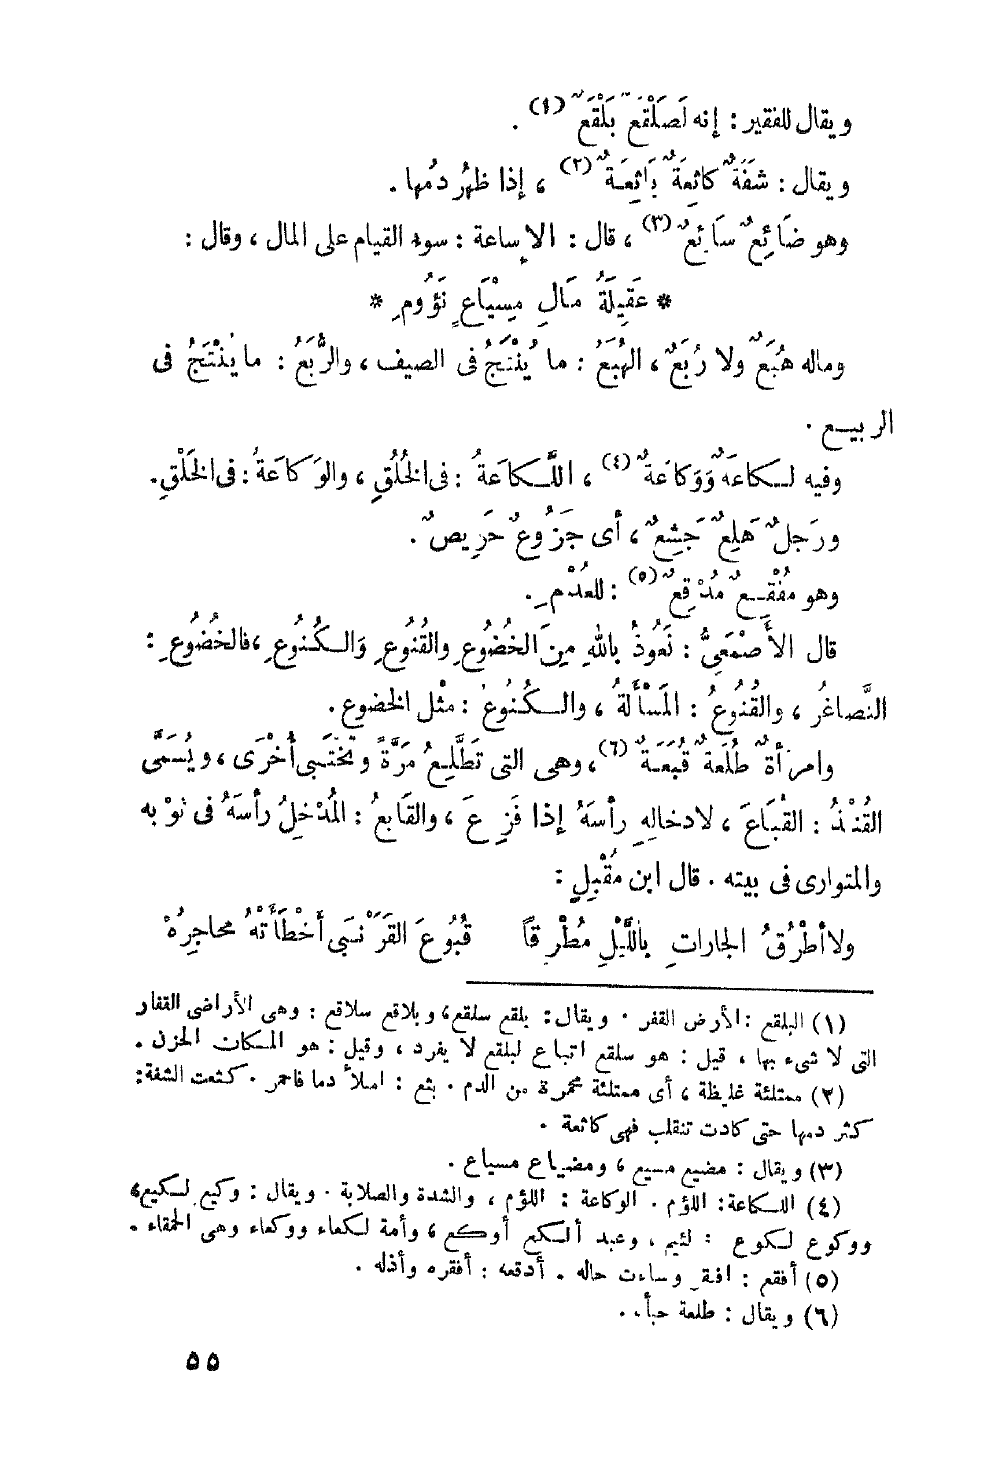 ويقال للفقير : إنه لَصَلْقَعٌ بَلْقَعٌ (١) .
ويقال : شَفَةٌ كَاثِعَةٌ بَاثِعَةٌ (٢) ، إذا ظهُر دمُها .
وهو ضَائِعٌ سَائِعٌ (٣) ، قال : الإساعة : سوء القيام على المال ، وقال :
* عَقِيلَةُ مَالِ مِسْيَاعٍ نَؤُومِ *
وماله هُبَعٌ ولا رُبَعٌ ، الهُبَعُ : ما يُنْتَجُ فى الصيف ، والرُّبَعُ : ما يُنْتَجُ فى
الربيع .
وفيه لَكاعَةٌ وَوَكَاعَةٌ (٤) ، اللَّكَاعَةُ : فى الخُلُقِ ، والوَكَاعَةُ : فى الخَلْقِ .
ورَجلٌ هَلِعٌ جَشِعٌ ، أى جَزُوعٌ حَرِيصٌ .
وهو مُفْقِعٌ مُدْقِعٌ (٥) : للعُدْمِ .
قال الأَصْمَعِىُّ : نَعُوذُ باللهِ مِنَ الخُضُوعِ والقُنُوعِ وَالكُنُوعِ ، فالخُضُوعِ :
التَّصاغُر ، والقُنُوعُ : المَسْأَلَةُ ، والكُنُوعُ : مثْل الخضوع .
وامرأةٌ طُلَعَةٌ قُبَعَةٌ (٦) ، وهى التى تَطَّلِعُ مَرَّةً وتَخْتَبِى أُخْرَى ، ويُسَمَّى
القُنْفُذُ : القُبَاعَ ، لادخالِهِ رأسَهُ إذا فَزِعَ ، والقَابِعُ : المُدْخِلُ رأسَهُ فى ثوْبه
والمتوارى فى بيته . قال ابن مُقْبِلٍ :
ولا أَطْرُقُ الجاراتِ بالَّيْلِ مُطْرِقاً قُبُوعَ القَرَنْبَى أَخْطَأَتْهُ محاجِرُهْ
(١) البلقع : الأرض القفر . ويقال : بلقع سلقع ، وبلاقع سلاقع : وهى الأراضى القفار
التى لا شىء بها ، قيل : هو سلقع اتباع لبلقع لا يفرد ، وقيل : هو المكان الحزن .
(٢) ممتلئة غليظة ، أى ممتلئة محمرة من الدم . بثع : امتلأ دما فاحمر . كثعت الشفة :
كثر دمها حتى كادت تنقلب فهى كاثعة .
(٣) ويقال : مضيع مسيع ، ومضياع مسياع .
(٤) اللكاعة : اللؤم . الوكاعة : اللؤم ، والشدة والصلابة . ويقال : وكيع لكيع ،
ووكوع لكوع : لئيم ، وعبد ألكع أوكع ، وأمة لكعاء ووكعاء وهى الحمقاء .
(٥) أفقع : افتقر وساءت حاله . أدقعه : أفقره وأذله .
(٦) ويقال : طلعة خبأة .
٥٥